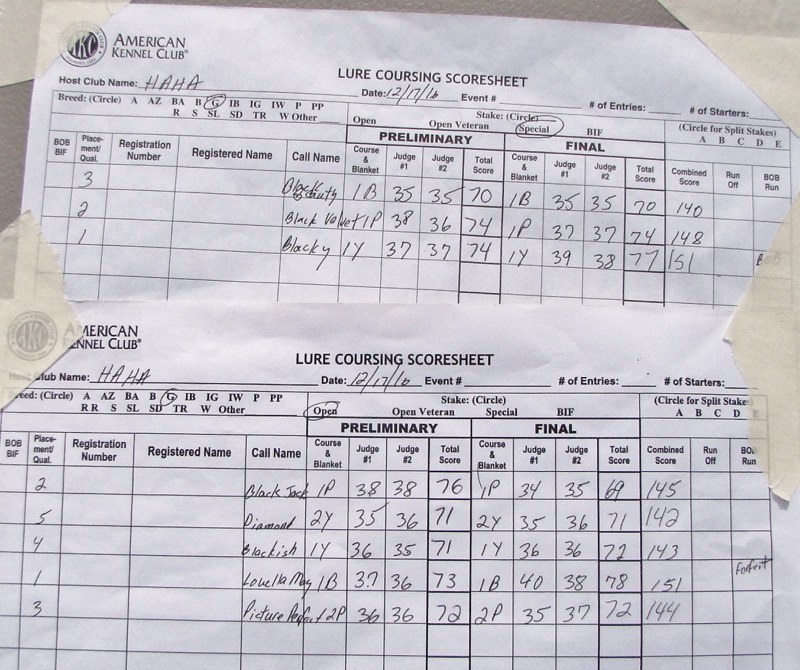 AKC AMERICAN
KENNEL CLUB®
LURE COURSING SCORESHEET
Host Club Name: HAHA Date: 12/17/16 Event # # of Entries: # of Starters:
Breed: (Circle) A AZ BA B G IB IG IW P PP
R S SL SD TR W Other
Stake: (Circle)
Open Open Veteran Special BIF
(Circle for Split Stakes)
A B C D E
PRELIMINARY FINAL
BOB BIF Place-ment/ Qual. Registration Number Registered Name Call Name Course & Blanket Judge #1 Judge #2 Total Score Course & Blanket Judge #1 Judge #2 Total Score Combined Score Run Off BOB Run
3 Black 1B 35 35 70 1B 35 35 70 140
2 Black Velvet 1P 38 36 74 1P 37 37 74 148
1 Blacky 1Y 37 37 74 1Y 39 38 77 151
AMERICAN
KENNEL CLUB®
LURE COURSING SCORESHEET
Club Name: HAHA Date: 12/17/16 Event # # of Entries: # of Starters:
eed: (Circle) A AZ BA B G IB IG IW P PP
RR S SL SD TR W Other
Stake: (Circle)
Open Open Veteran Special BIF
(Circle for Split Stakes
A B C D E
PRELIMINARY FINAL
BOB BIF Place-ment/ Qual. Registration Number Registered Name Call Name Course & Blanket Judge #1 Judge #2 Total Score Course & Blanket Judge #1 Judge #2 Total Score Combined Score Run Off BOB Run
2 Black Jack 1P 38 38 76 1P 34 35 69 145
5 Diamond 2Y 35 36 71 2Y 35 36 71 142
4 Blackish 1Y 36 35 71 1Y 36 36 72 143
1 Louella May 1B 37 36 73 1B 40 38 78 151 Forfeit
3 Picture Perfect 2P 36 36 72 2P 35 37 72 144